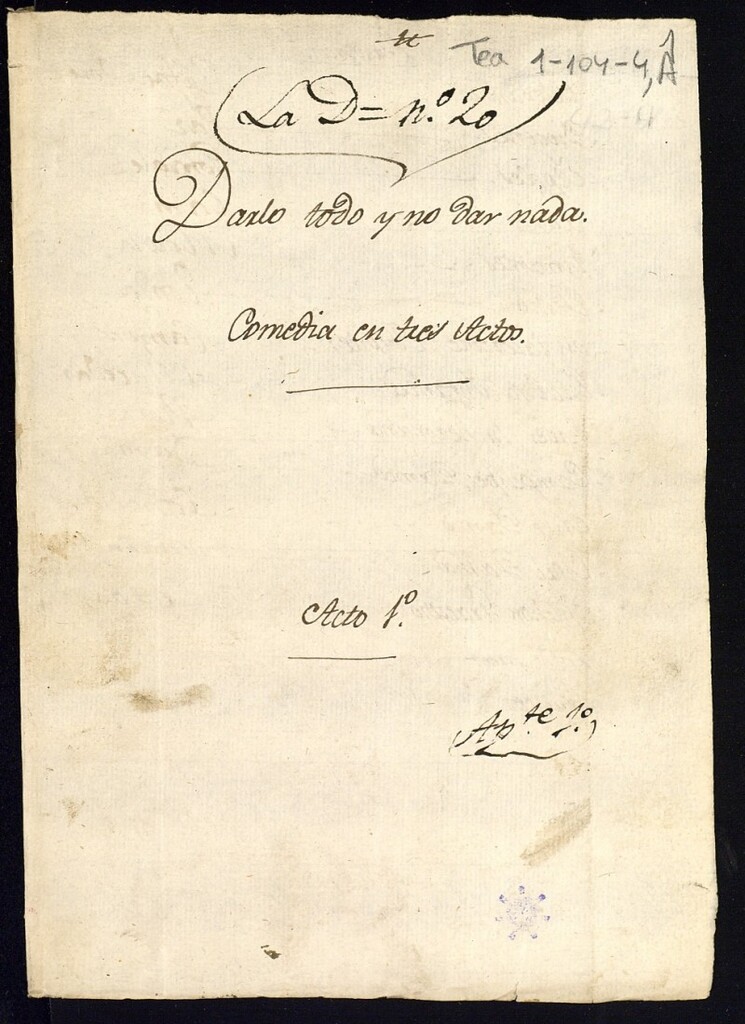 Tea 1-104-4, A
La D= n.º 20
Darlo todo y no dar nada.
Comedia en tres Actos.
Acto 1.º
Ap.te 1.º